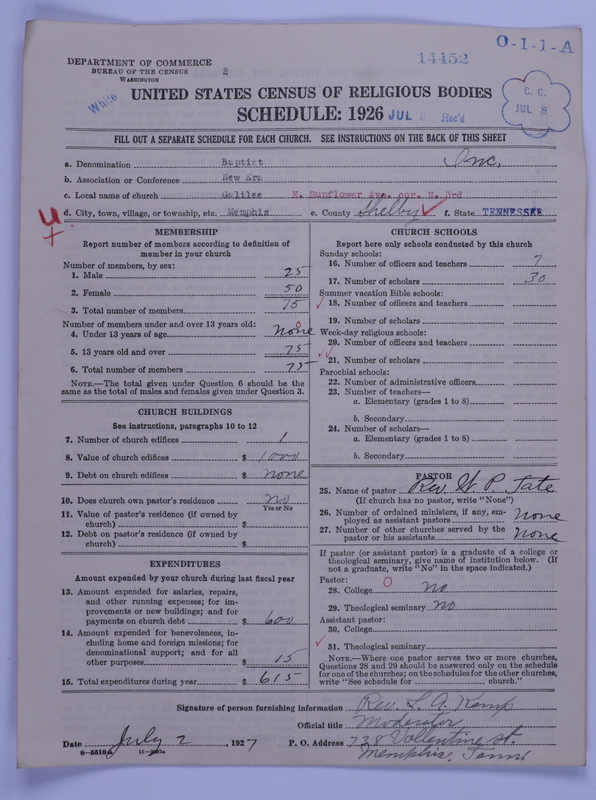 O-1-1-A
14452
DEPARTMENT OF COMMERCE
BUREAU OF THE CENSUS 2
WASHINGTON
White
UNITED STATES CENSUS OF RELIGIOUS BODIES
SCHEDULE: 1926 JUL 8 Rec'd
C. C.
JUL 8
FILL OUT A SEPARATE SCHEDULE FOR EACH CHURCH. SEE INSTRUCTIONS ON THE BACK OF THIS SHEET
a. Denomination Baptist Inc.
b. Association or Conference New Era
c. Local name of church Galilee N. Sunflower Ave. cor. N. 3rd
d. City, town, village, or township, etc. Memphis e. County Shelby f. State TENNESSEE
U
MEMBERSHIP
Report number of members according to definition of
member in your church
Number of members, by sex:
1. Male 25
2. Female 50
3. Total number of members 75
Number of members under and over 13 years old:
4. Under 13 years of age none
5. 13 years old and over 75
6. Total number of members 75
NOTE.—The total given under Question 6 should be the
same as the total of males and females given under Question 3.
CHURCH BUILDINGS
See instructions, paragraphs 10 to 12
7. Number of church edifices 1
8. Value of church edifices $ 1000
9. Debt on church edifices $ none
10. Does church own pastor's residence no
Yes or No
11. Value of pastor's residence (if owned by
church) $
12. Debt on pastor's residence (if owned by
church) $
EXPENDITURES
Amount expended by your church during last fiscal year
13. Amount expended for salaries, repairs,
and other running expenses; for im-
provements or new buildings; and for
payments on church debt $ 600
14. Amount expended for benevolences, in-
cluding home and foreign missions; for
denominational support; and for all
other purposes $ 15
15. Total expenditures during year $ 615
CHURCH SCHOOLS
Report here only schools conducted by this church
Sunday schools:
16. Number of officers and teachers 7
17. Number of scholars 30
Summer vacation Bible schools:
18. Number of officers and teachers
19. Number of scholars
Week-day religious schools:
20. Number of officers and teachers
21. Number of scholars
Parochial schools:
22. Number of administrative officers
23. Number of teachers—
a. Elementary (grades 1 to 8)
b. Secondary
24. Number of scholars—
a. Elementary (grades 1 to 8)
b. Secondary
PASTOR
25. Name of pastor Rev. W. P. Tate
(If church has no pastor, write "None")
26. Number of ordained ministers, if any, em-
ployed as assistant pastors None
27. Number of other churches served by the
pastor or his assistants None
If pastor (or assistant pastor) is a graduate of a college or
theological seminary, give name of institution below. (If
not a graduate, write "No" in the space indicated.)
Pastor:
28. College no
29. Theological seminary no
Assistant pastor:
30. College
31. Theological seminary
NOTE.—Where one pastor serves two or more churches,
Questions 28 and 29 should be answered only on the schedule
for one of the churches; on the schedules for the other churches,
write "See schedule for church."
Signature of person furnishing information Rev. L. A. Kemp
Official title Moderator
Date July 2, 1927 P. O. Address 738 Vollentine St.
Memphis, Tenn